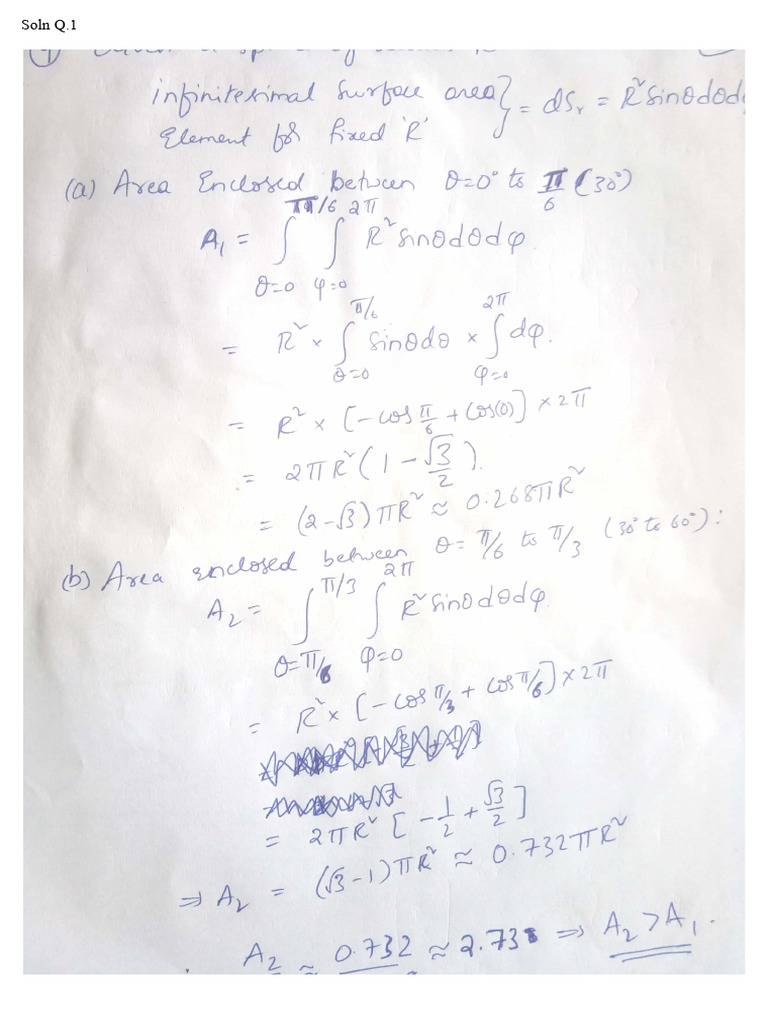 Soln Q.1
infinitesimal Surface area } = dSᵣ = R²sinθdθd
Element for fixed 'R'
(a) Area Enclosed between θ=0° to π/6 (30°)
A₁ = ∫_{θ=0}^{π/6} ∫_{φ=0}^{2π} R² sinθdθdφ.
= R² × ∫_{θ=0}^{π/6} sinθdθ × ∫_{φ=0}^{2π} dφ.
= R² × [-cos π/6 + cos(0)] × 2π
= 2πR² (1 - √3/2).
= (2-√3)πR² ≈ 0.268πR²
(b) Area enclosed between θ = π/6 to π/3 (30° to 60°):
A₂ = ∫_{θ=π/6}^{π/3} ∫_{φ=0}^{2π} R² sinθdθdφ
= R² × [-cos π/3 + cos π/6] × 2π
= 2πR² [-1/2 + √3/2]
⇒ A₂ = (√3-1)πR² ≈ 0.732πR²
A₂ ≈ 0.732 ≈ 2.73 ⇒ A₂ > A₁.